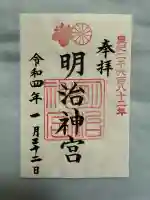 皇紀二千六百八十二年
奉拝
明治神宮
令和四年 一月